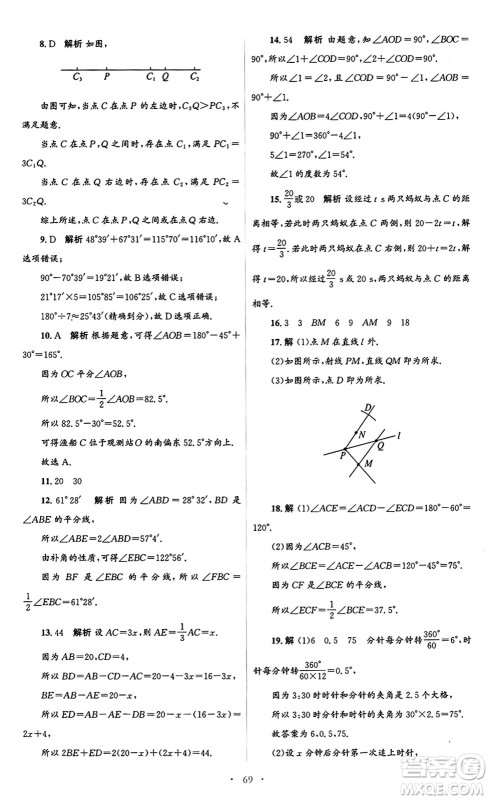 8. D 解析 如图，
C₃ P C₁ Q C₂
由图可知，当点 C 在点 P 的左边时，C₃Q＞PC₃，不
满足题意.
当点 C 在点 P，Q 之间时，满足 PC₁＝2C₁Q.
当点 C 在点 Q 右边时，存在点 C₂，满足 PC₂＝
2C₂Q.
综上所述，点 C 在点 P 右边.
9. D 解析 48°39′＋67°31′＝115°70′＝116°10′，故 A
选项错误；
90°－70°39′＝19°21′，故 B 选项错误；
21°17′×5＝105°85′＝106°25′，故 C 选项错误；
180°÷7≈25°43′(精确到分)，故 D 选项正确.
10. A 解析 根据题意，可知∠AOB＝180°－45°＋
30°＝165°.
因为 OC 平分∠AOB，
所以∠BOC＝1/2∠AOB＝82.5°.
所以 82.5°－30°＝52.5°.
可得渔船 C 位于观测站 O 的南偏东 52.5°方向.
故选 A.
11. 20 30
12. 61°28′ 解析 因为∠ABD＝57°4′，BD 是
∠ABE 的平分线，
所以∠ABE＝2∠ABD＝2×57°4′＝114°8′.
由补角的性质，可得∠ABC＝122°56′.
因为 BF 是∠EBC 的平分线，所以∠EBF＝
1/2∠EBC＝61°28′.
13. 44 解析 设 AC＝3x，则 AE＝1/3AC＝x.
因为 AB＝20，CD＝4，
所以 BD＝AB－AC－CD＝20－4－3x＝16－3x，
BE＝AB－AE＝20－x.
所以 ED＝BE－BD＝20－x－(16－3x)＝20－x－16＋3x＝
2x＋4，
所以 2BE＋ED＝2(20－x)＋2x＋4＝44.
14. 54 解析 由题意，可知∠AOD＝90°，∠BOC＝
90°，所以∠1＋∠COD＝90°，∠2＋∠COD＝90°.
所以∠1＝∠2.
因为∠AOB＝4∠1，所以∠1＋90°＋∠2＝4∠1.
90°＋∠1＝4∠1.
5∠1＝270°.
∠1＝54°.
故∠1 的度数为 54°.
15. 20/3或 20 解析 设经过 t s 两只蚂蚁与点 C 的距
离相等，若此时两只蚂蚁在点 C 两侧，则 20－2t＝t，
解得 t＝20/3. 若此时两只蚂蚁在点 C 右侧，则 2t－20＝t，
解得 t＝20，所以经过20/3 s 或 20 s 两只蚂蚁与点 C 的距离
相等.
16. 3 3 BM 6 AM 9 18
17. 解 (1)点 M 在直线 l 外.
(2)如图所示，射线 PM，直线 QM 即为所求.
(3)如图所示，点 D 即为所求.
D
N
l
P
Q
M
18. 解 (1)∠ACE＝∠ACD－∠BCD＝180°－60°＝
120°.
(2)因为∠ACB＝45°，
所以∠BCE＝∠ACE－∠ACB＝120°－45°＝75°.
所以∠ACD＝∠ACB＋∠BCD＝45°＋60°＝105°.
19. 解 (1)6 0.5 75 分针每分钟转360°/60＝6°，时
针每分钟转360°/(60×12)＝0.5°，
因为 3:30 时时针和分针的夹角是 2.5 大格，
所以 3:30 时时针和分针的夹角为 2.5×30°＝75°.
故答案为：6，0.5，75.
(2)设 x 分钟后分针第一次追上时针，
·69·